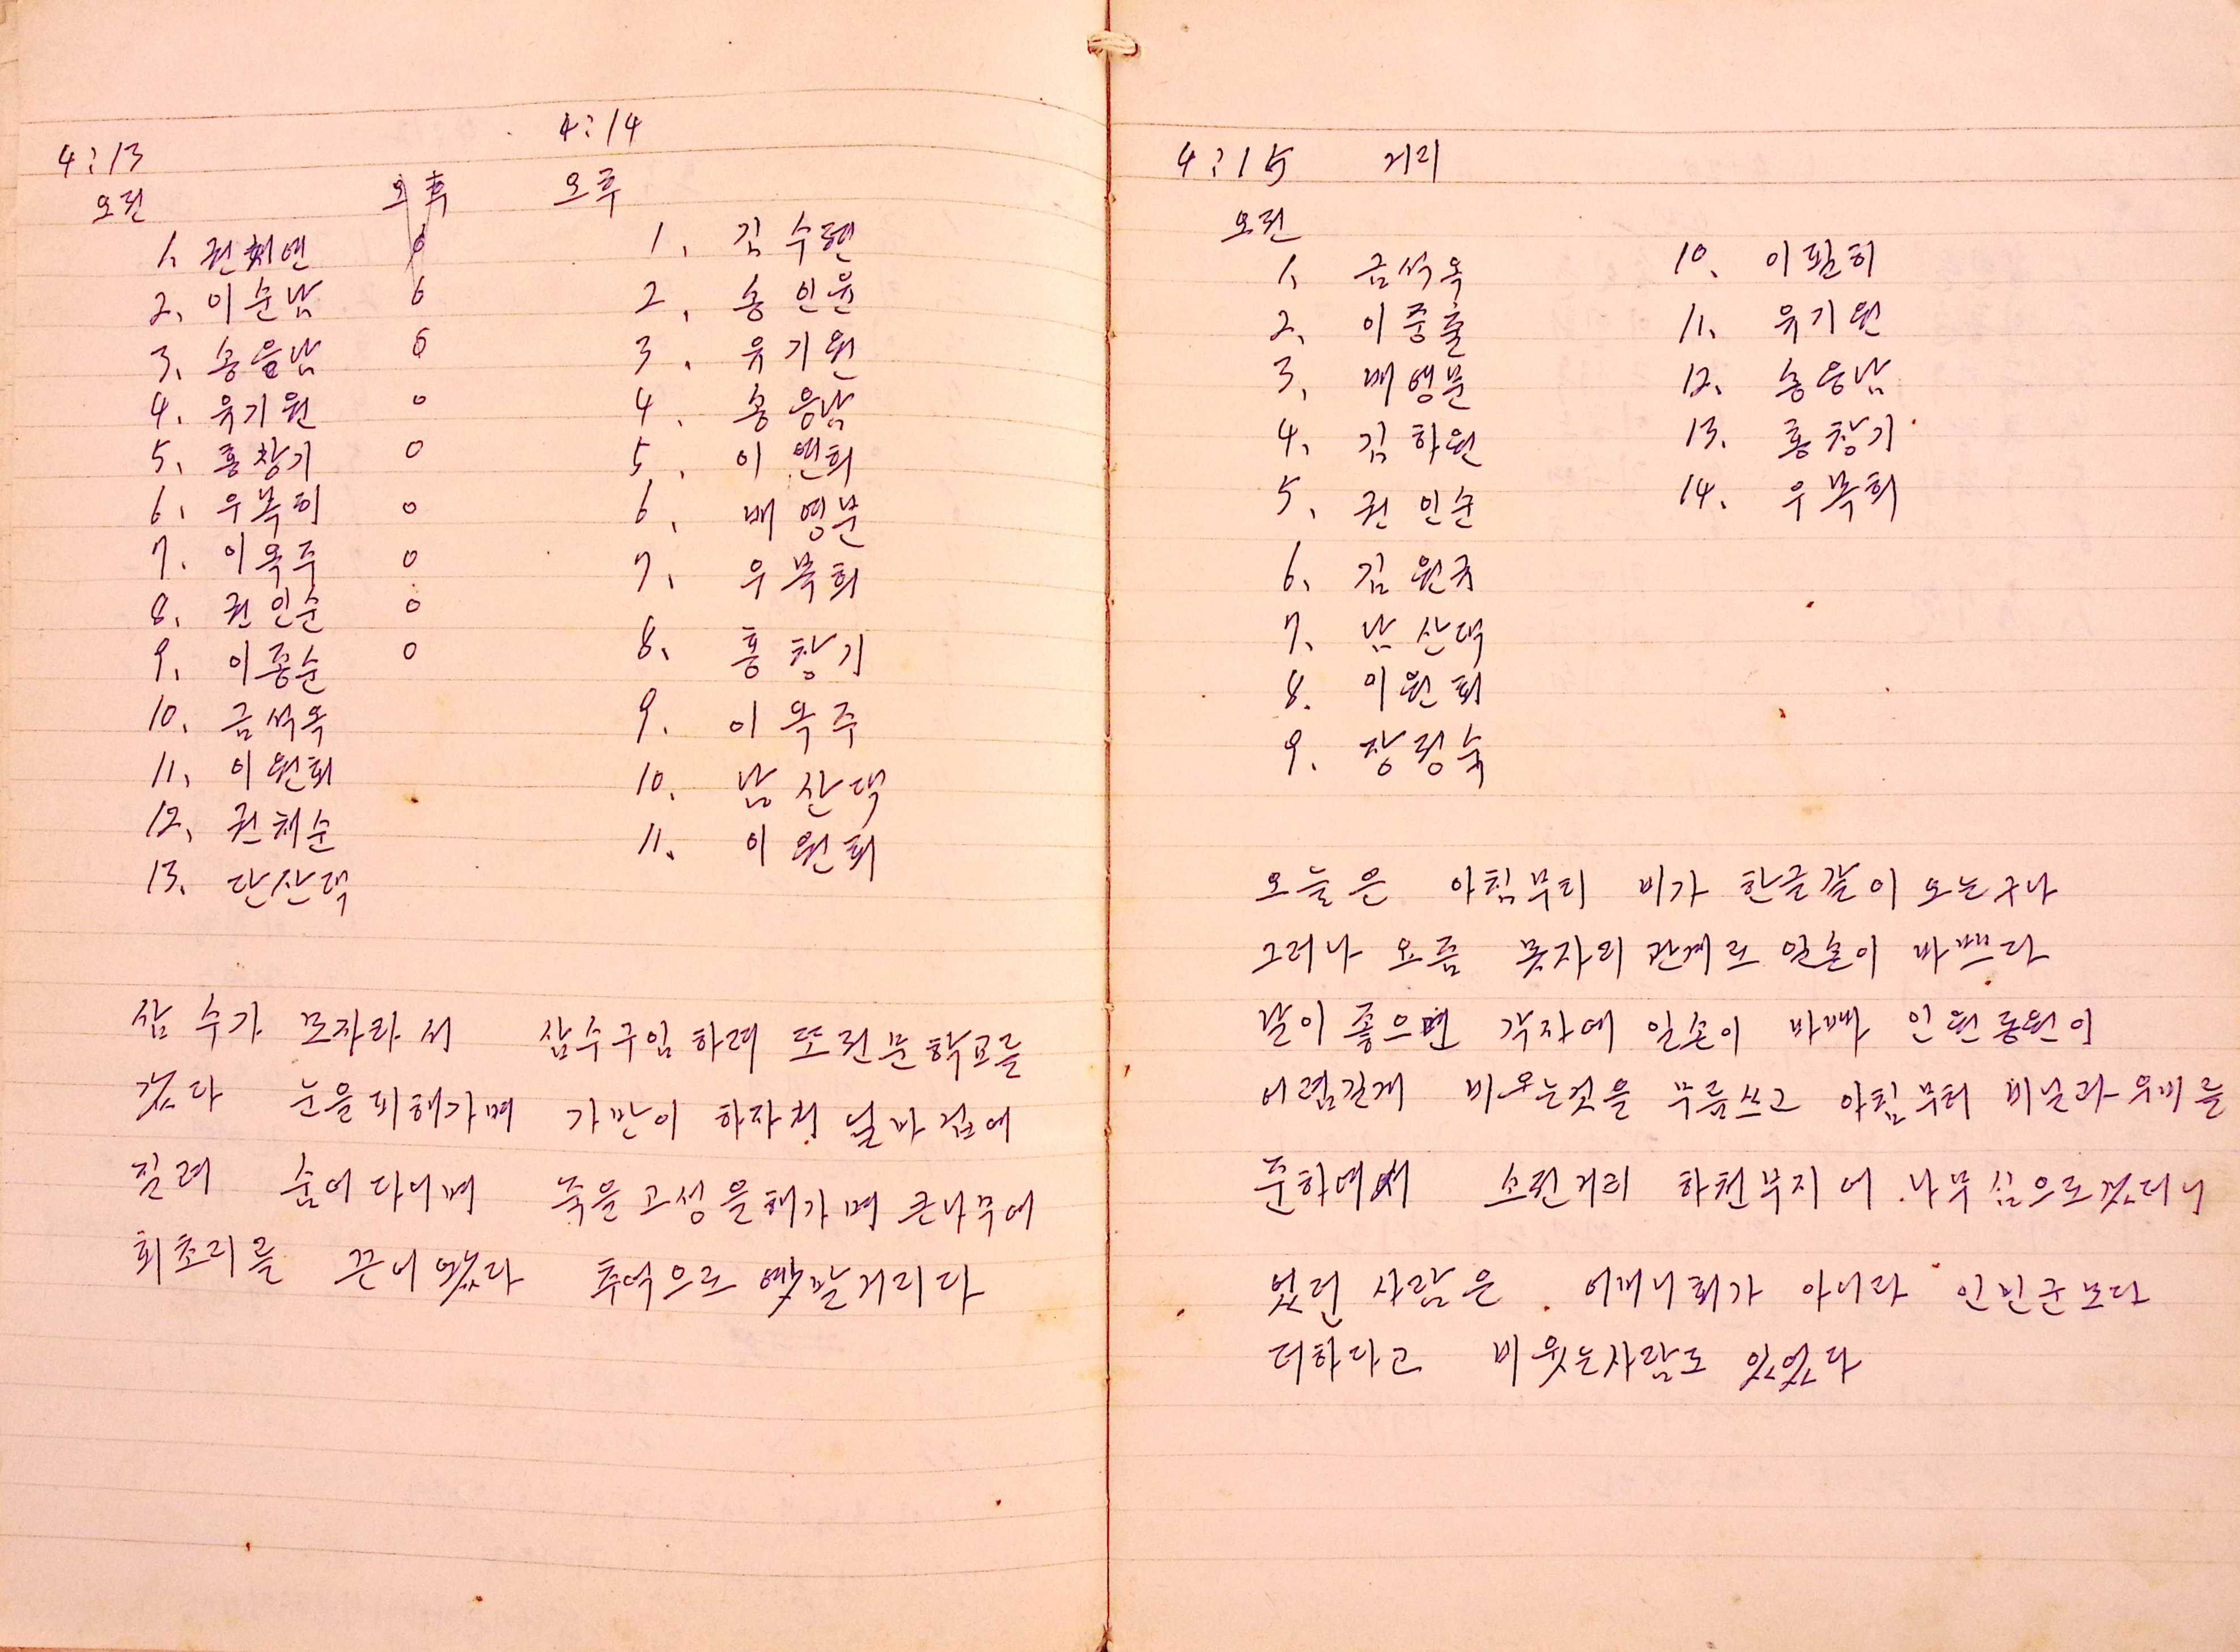 4:13
오전 오후
1. 권채연 0
2. 이순남 0
3. 송을남 0
4. 유기원 0
5. 홍창기 0
6. 우복희 0
7. 이옥주 0
8. 권인순 0
9. 이종순 0
10. 금석옥
11. 이원희
12. 권채순
13. 단산댁
4:14
오후
1. 김수련
2. 송인윤
3. 유기원
4. 송응남
5. 이연희
6. 배영분
7. 우복희
8. 홍창기
9. 이옥주
10. 남산댁
11. 이원희
삼수가 모자라서 삼수구입하려 또 전문학교를
갔다 눈을 피해가며 가만이 하자치 날마 겁에
질려 숨어다니며 죽을 고성을 해가며 큰나무에
회초리를 끈어 왔다 추억으로 옛말거리다
4:15 거리
오전
1. 금석옥
2. 이중출
3. 배영분
4. 김하원
5. 권인순
6. 김원규
7. 남산댁
8. 이원희
9. 장정숙
10. 이필희
11. 유기원
12. 송응남
13. 홍창기
14. 우복희
오늘은 아침부터 비가 한글같이 오는구나
그러나 요즘 못자리 관계로 일손이 바쁘다
날이 좋으면 각자에 일손이 바빠 인원동원이
어렵길게 비오는것을 무릅쓰고 아침부터 비닐과 우비를
준하여서 소전거리 하천부지에 나무 심으로 갔더니
었던 사람은 어머니회가 아니라 인민군보다
더하다고 비웃는사람도 있었다